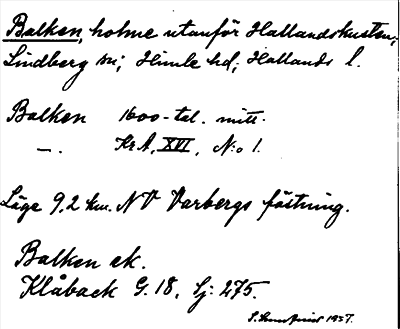 Balken, holme utanför Hallandskusten,
Lindberg sn; Himle hd, Hallands l.
Balken 1600-tal. mitt.
—. KrA, XVI, N:o 1.
Läge 9,2 km. NV Varbergs fästning.
Balken ek.
Klåback G. 18, Sj: 275.
1937.